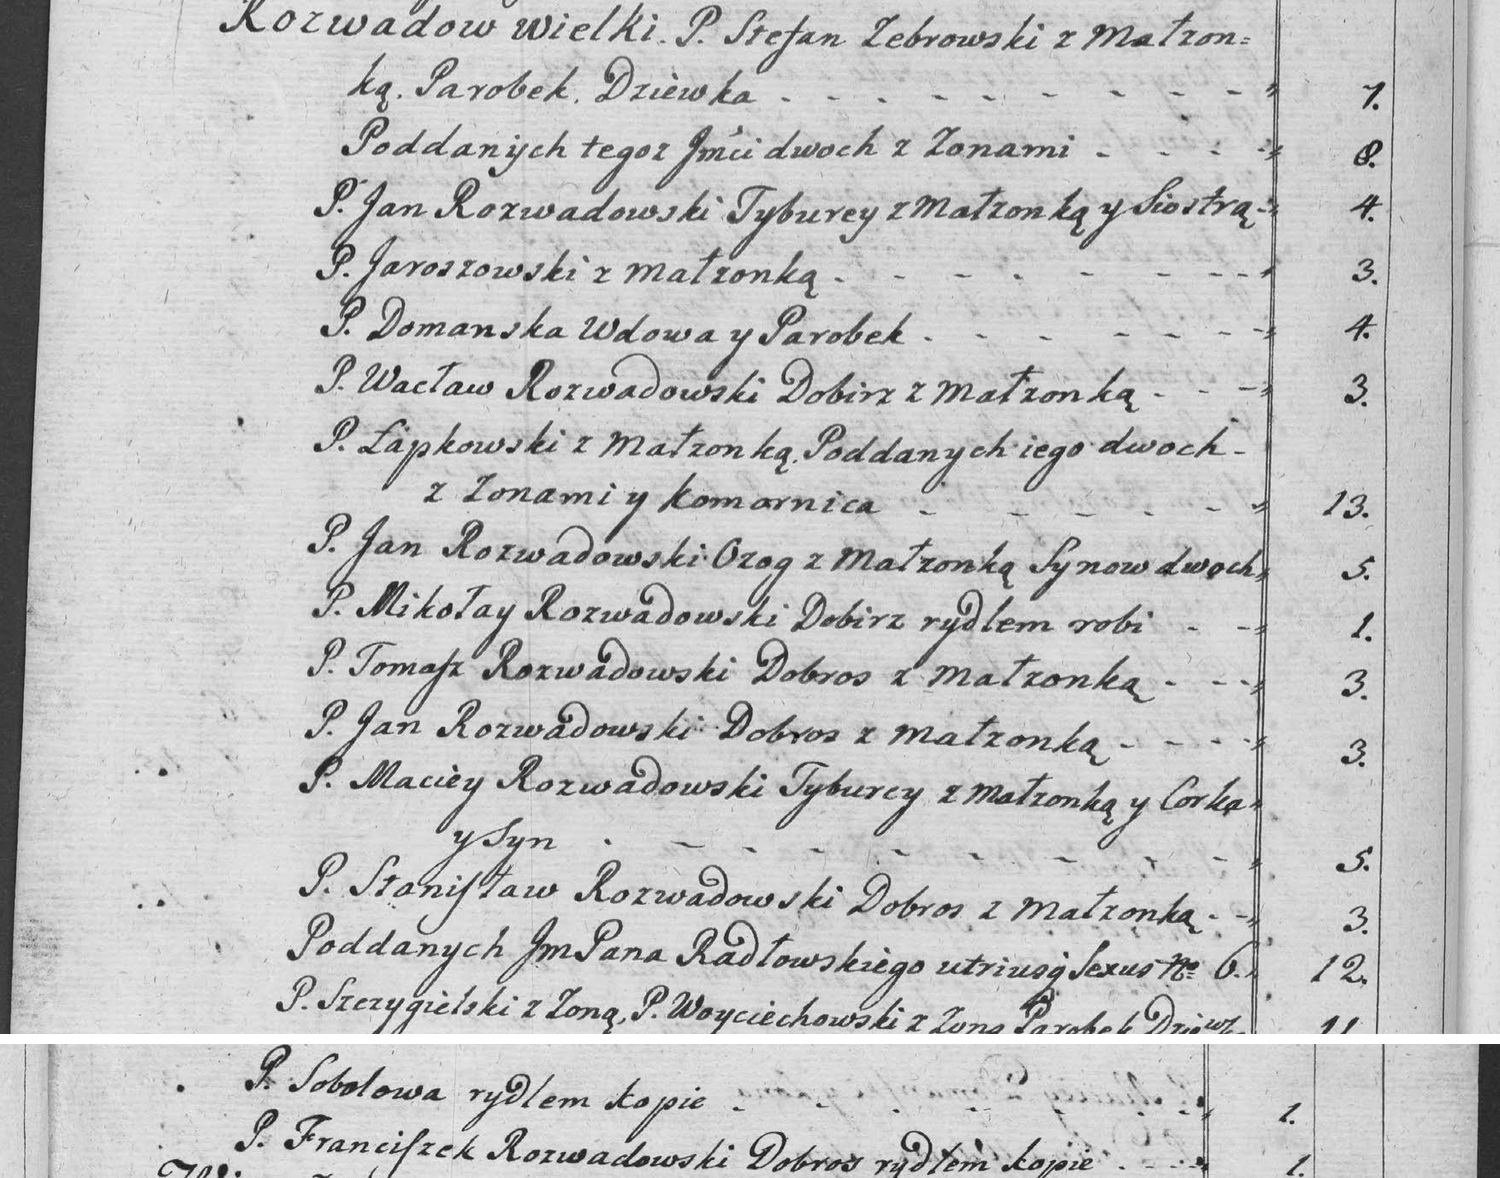 Rozwadow Wielki. P. Stefan Zebrowski z Małzon=
ką. Parobek. Dziewka - - - - - - - - - 7.
Poddanych tegoz Jmci dwoch z Zonami - - - - 8.
P. Jan Rozwadowski Tyburcy z Małzonką y Siostrą - 4.
P. Jaroszowski z Małzonką - - - - - - - - 3.
P. Domanska Wdowa y Parobek - - - - - - - 4.
P. Wacław Rozwadowski Dobirz z Małzonką - - - 3.
P. Łapkowski z Małzonką. Poddanych iego dwoch -
z Zonami y komornica - - - - - - 13.
P. Jan Rozwadowski Ozog z Małzonką Synow dwoch 5.
P. Mikołay Rozwadowski Dobirz rydlem robi - - 1.
P. Tomasz Rozwadowski Dobros z Małzonką - - - 3.
P. Jan Rozwadowski Dobros z Małzonką - - - - 3.
P. Maciey Rozwadowski Tyburcy z Małzonką y Corka
y Syn - - - - - - - - - - 5.
P. Stanisław Rozwadowski Dobros z Małzonką - - 3.
Poddanych Jm Pana Radłowskiego utriusq Sexus No 6. 12.
P. Szczygielski z Zoną, P. Woyciechowski z Zoną Parobek Dziewk 11
P. Sobolowa rydlem kopie - - - - - - 1.
P. Franciszek Rozwadowski Dobros rydlem kopie - - - 1.